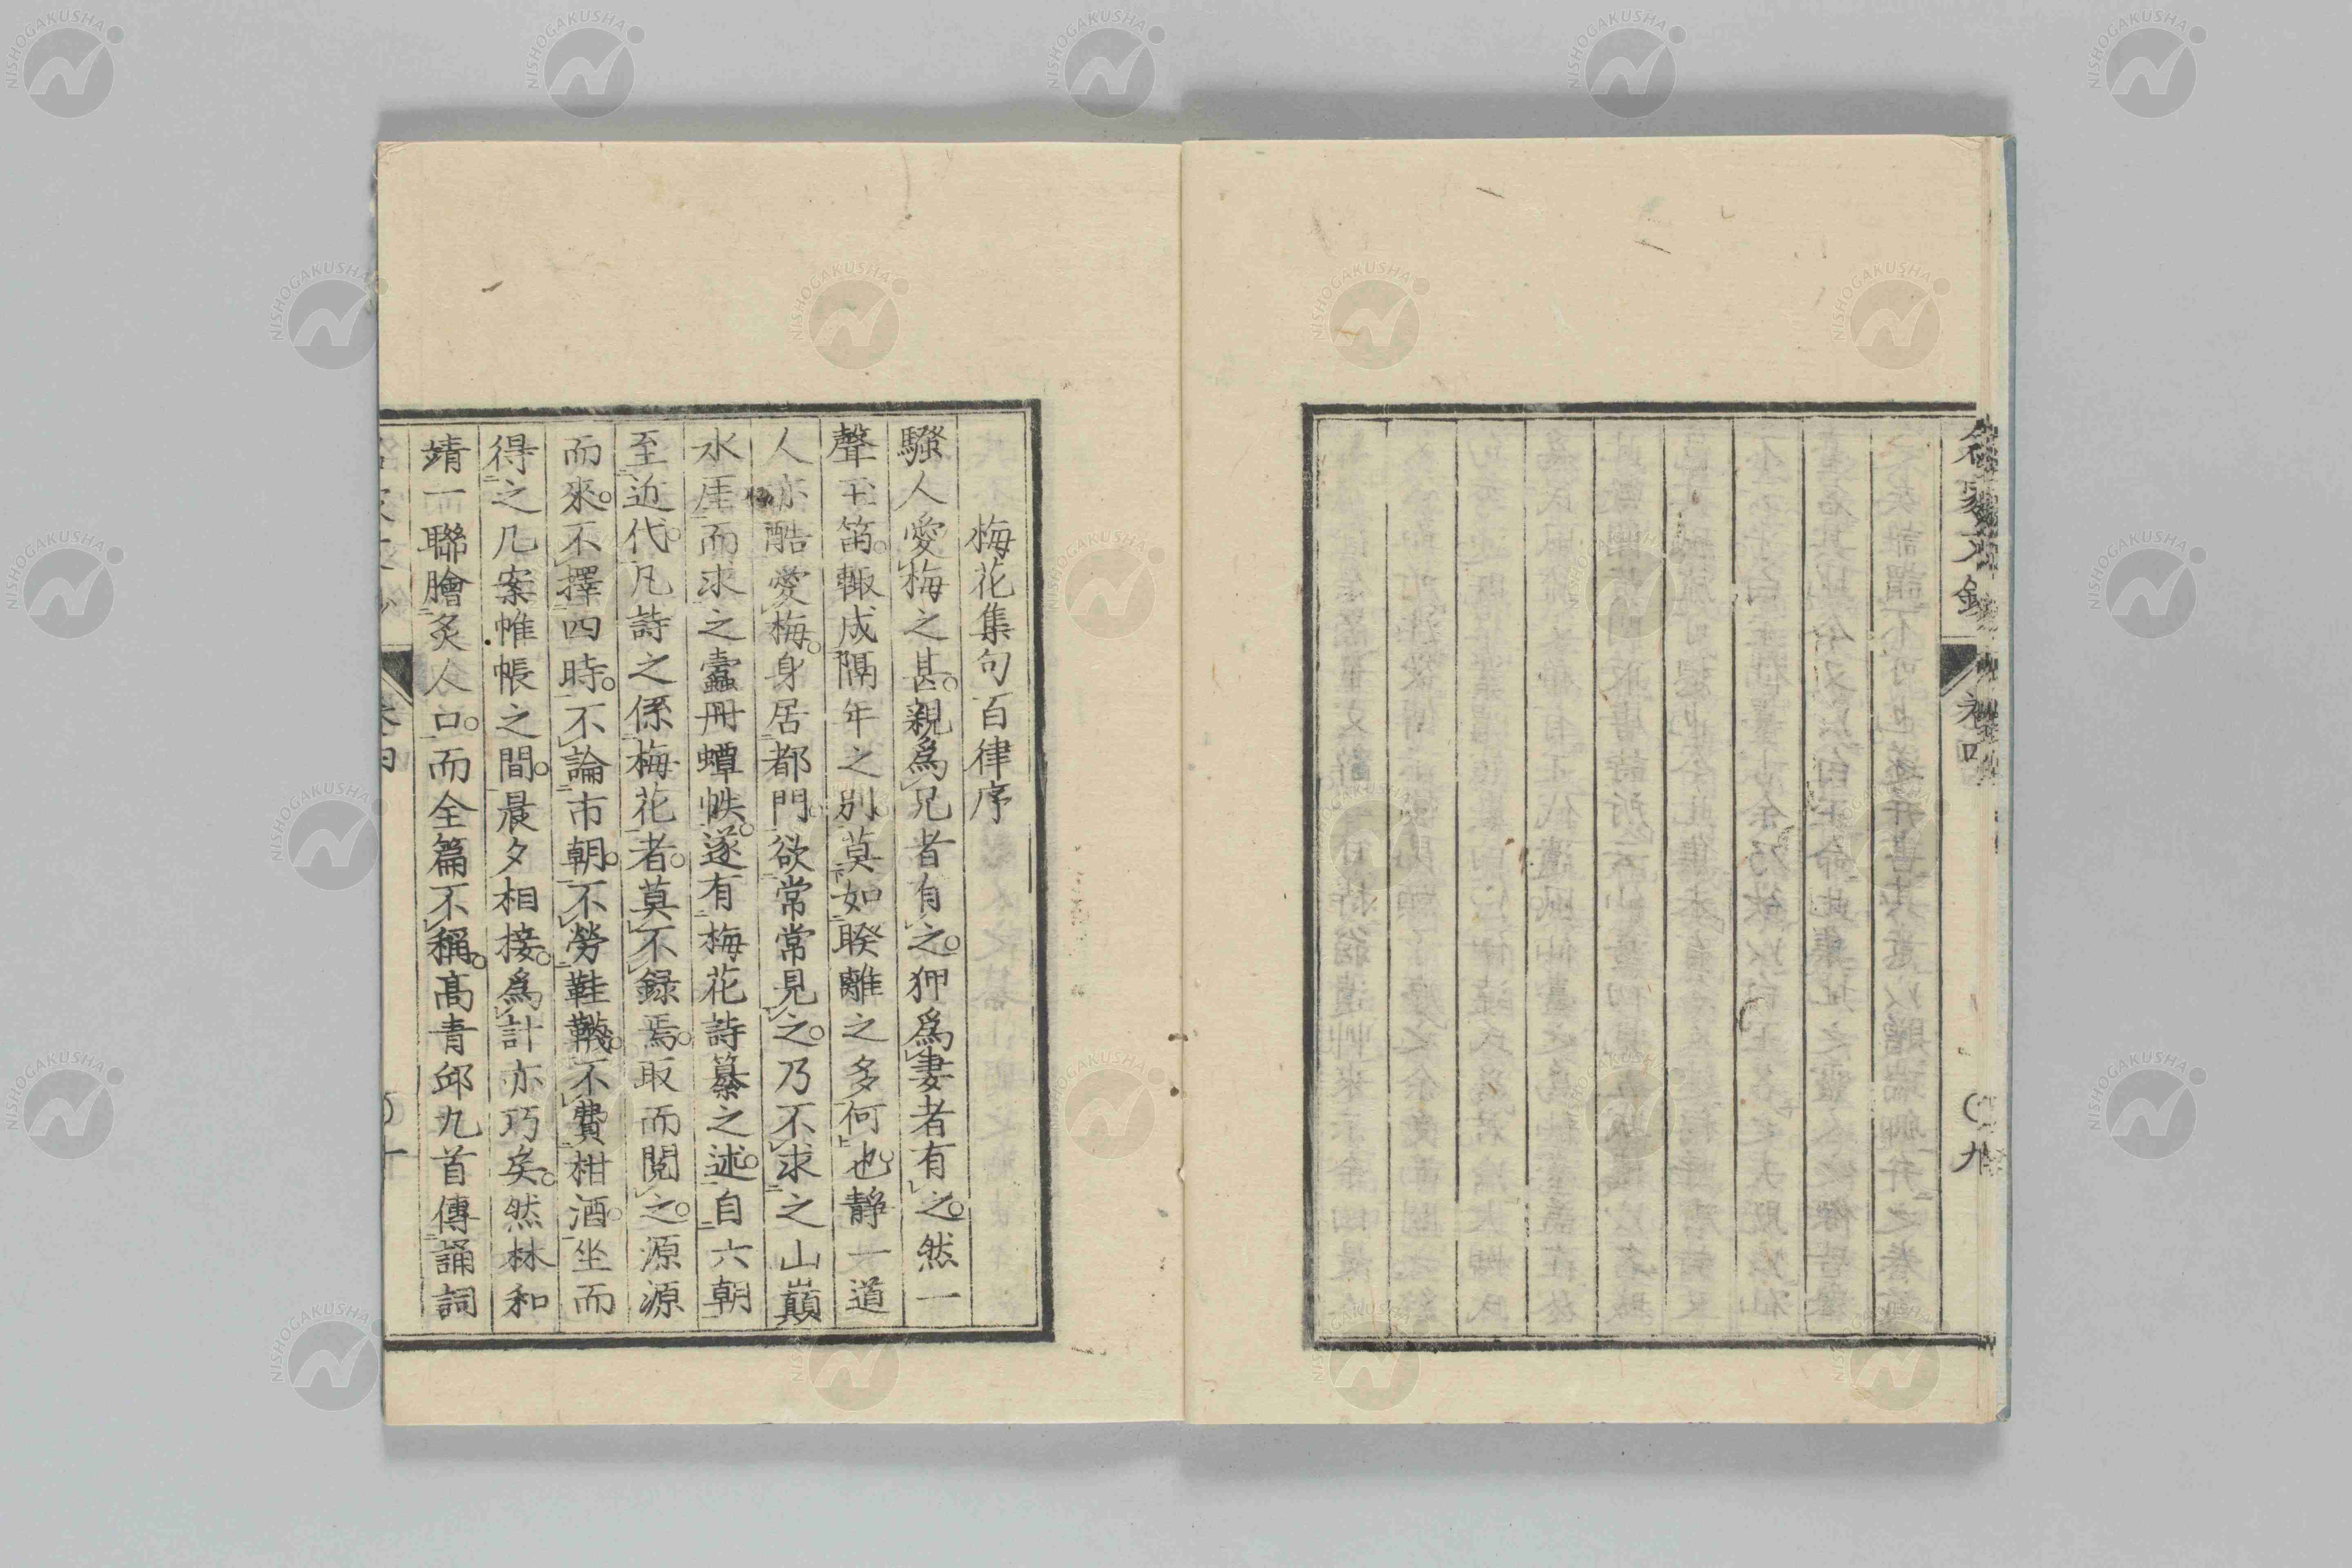 梅花集句百律序
騷人愛梅之甚。親爲兄者有之。狎爲妻者有之。然一
聲玉笛。輙成隔年之別。莫如睽離之多何也。靜一道
人亦酷愛梅。身居都門。欲常常見之。乃不求之山巓
水厓。而求之蠧冊蟫帙。遂有梅花詩纂之述。自六朝
至近代。凡詩之係梅花者。莫不録焉。取而閱之。源源
而來。不擇四時。不論市朝。不勞鞋韈。不費柑酒。坐而
得之几案帷帳之間。晨夕相接。爲計亦巧矣。然林和
靖一聯膾炙人口。而全篇不稱。高青邱九首傳誦詞
卷四
〇十
〇九
NISHOGAKUSHA